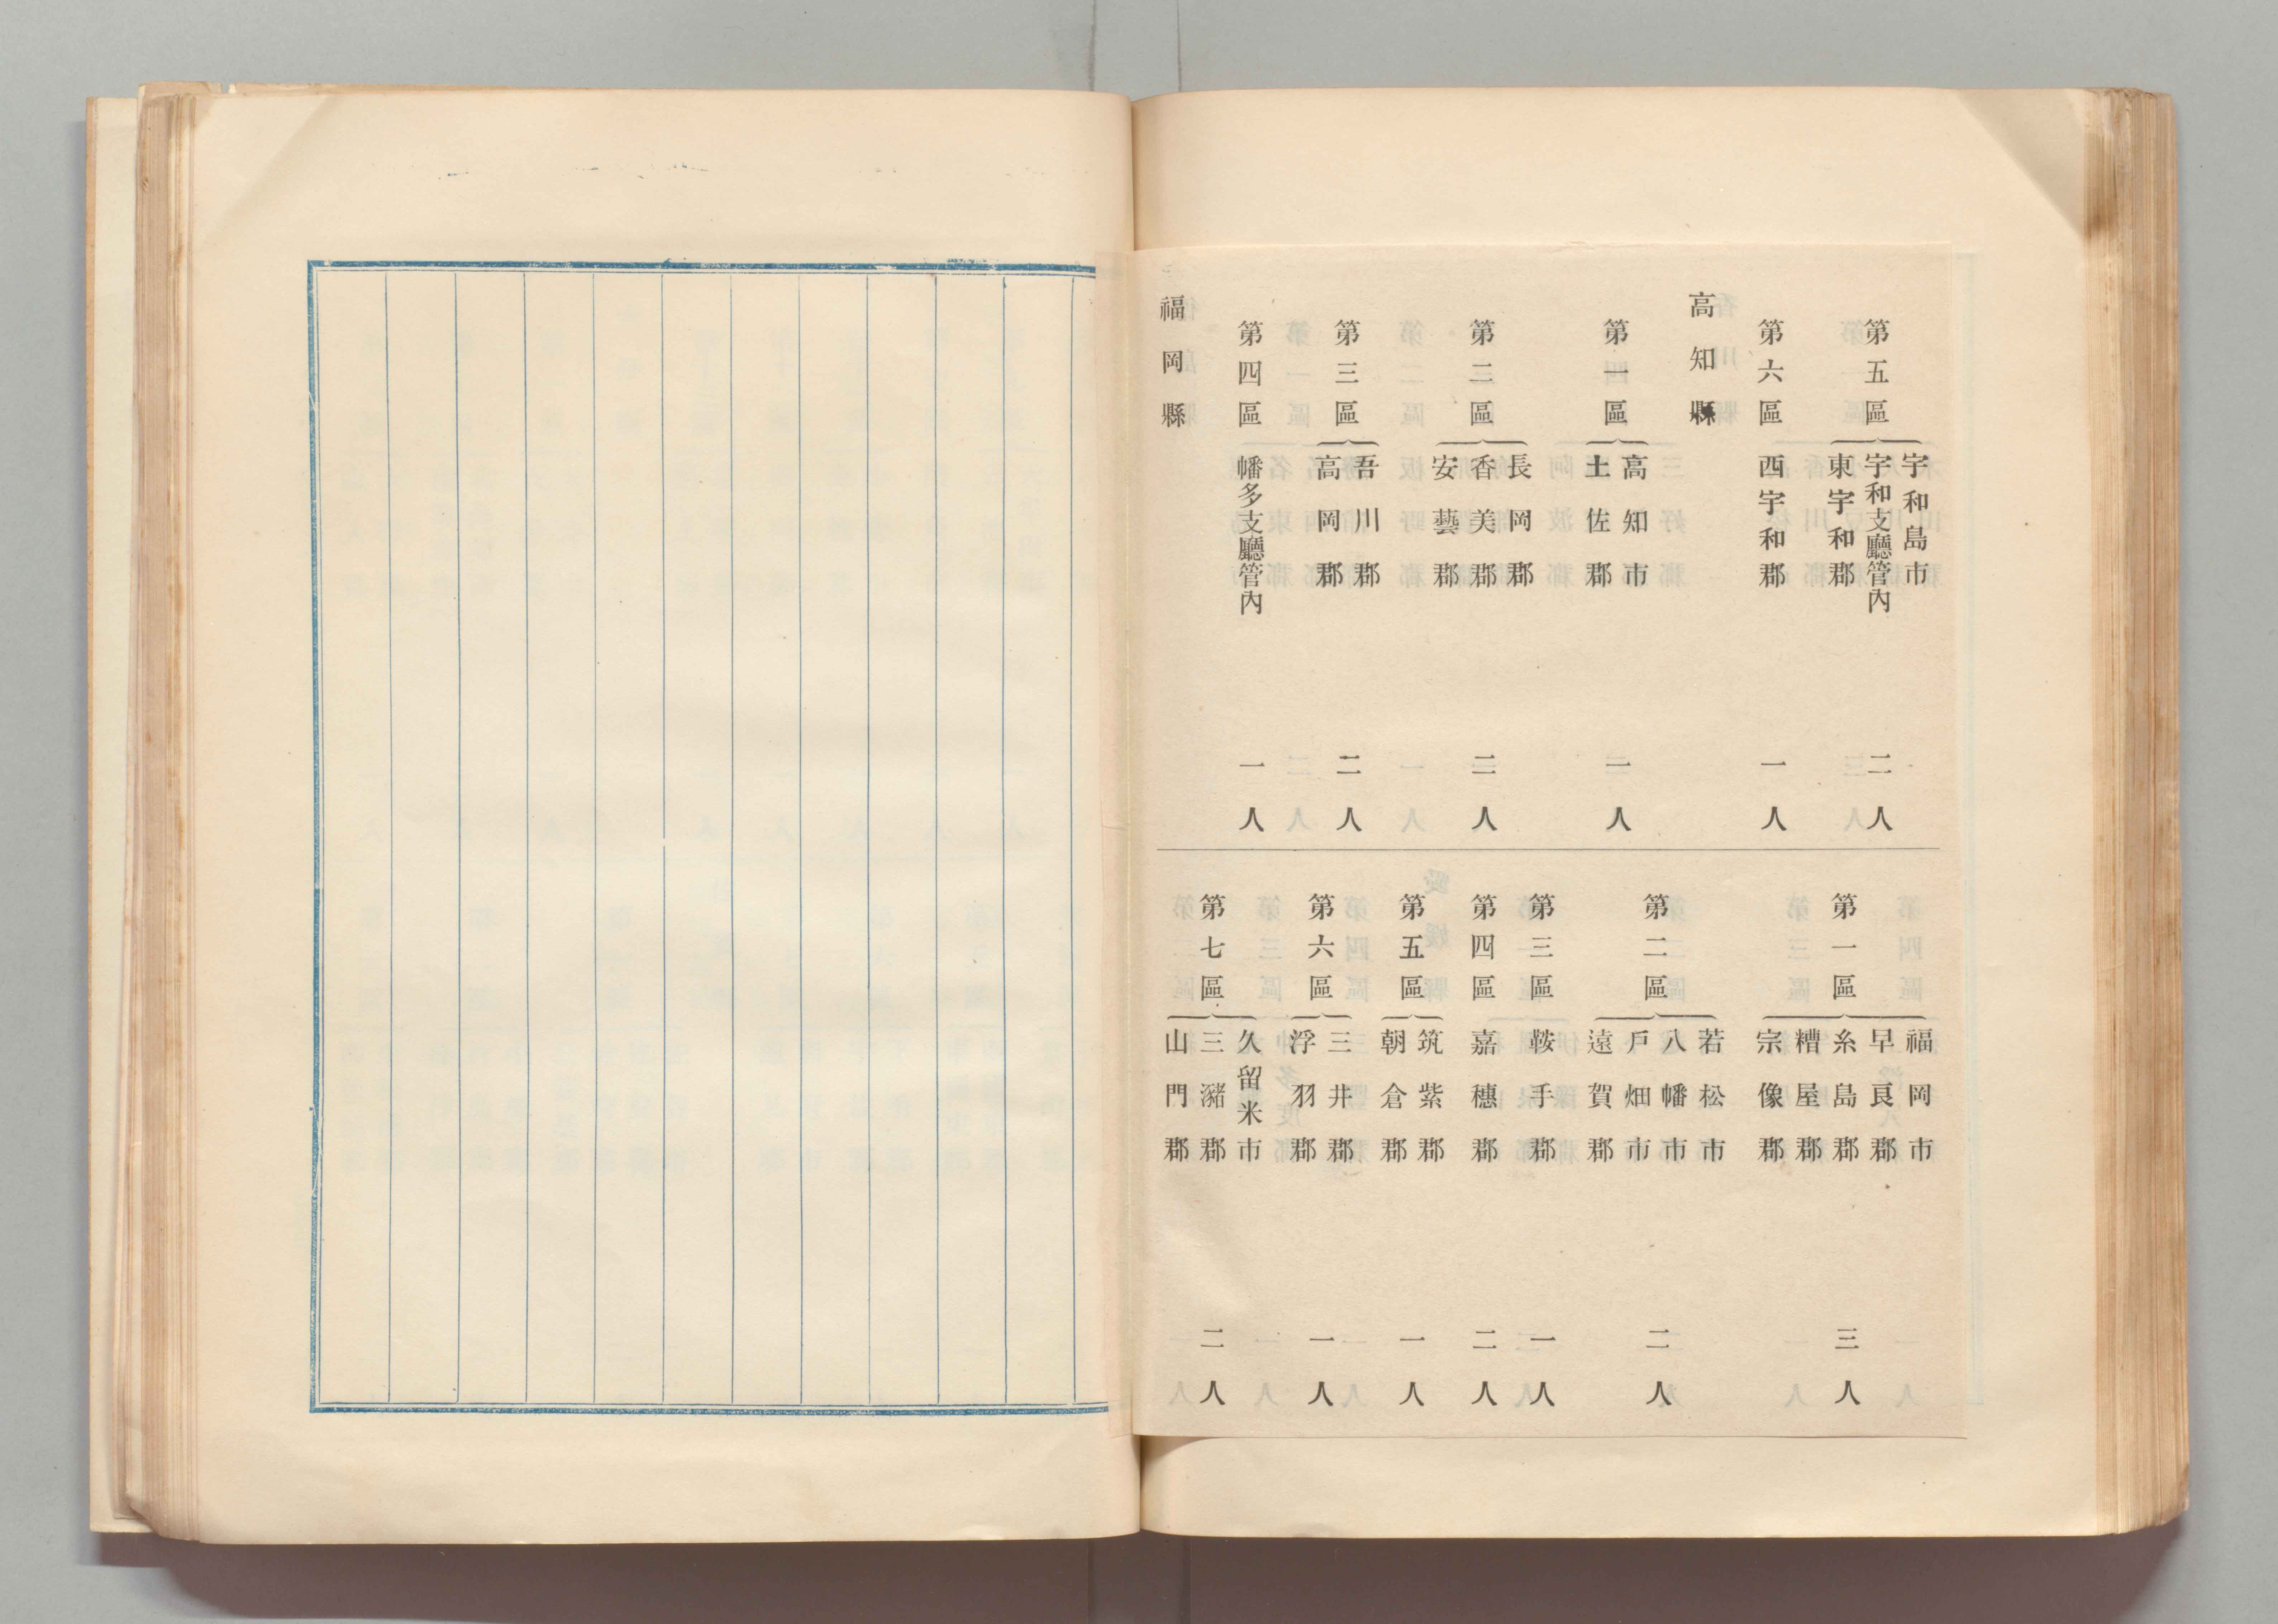 第五區
宇和島市
宇和支廳管內
東宇和郡
二人
第六區
西宇和郡
一人
高知縣
第一區
高知市
土佐郡
一人
第二區
長岡郡
香美郡
安藝郡
二人
第三區
吾川郡
高岡郡
二人
第四區
幡多支廳管內
一人
福岡縣
第一區
福岡市
早良郡
糸島郡
糟屋郡
宗像郡
三人
第二區
若松市
八幡市
戶畑市
遠賀郡
二人
第三區
鞍手郡
一人
第四區
嘉穗郡
二人
第五區
筑紫郡
朝倉郡
一人
第六區
三井郡
浮羽郡
一人
第七區
久留米市
三瀦郡
山門郡
二人